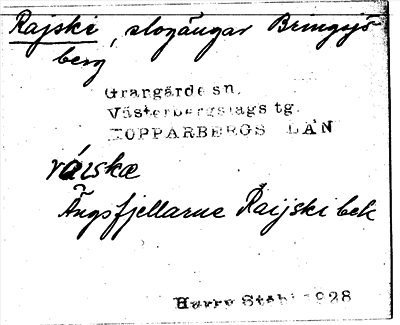 Rajski, slogängar Bringsjö-
berg
Grangärde sn.
Västerbergslags tg.
KOPPARBERGS LÄN
Ängsfjellarne Raijski bek
Harry Ståhl 1928